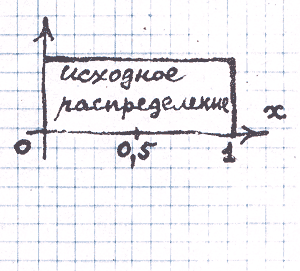 исходное
распределение
x
0 0,5 1